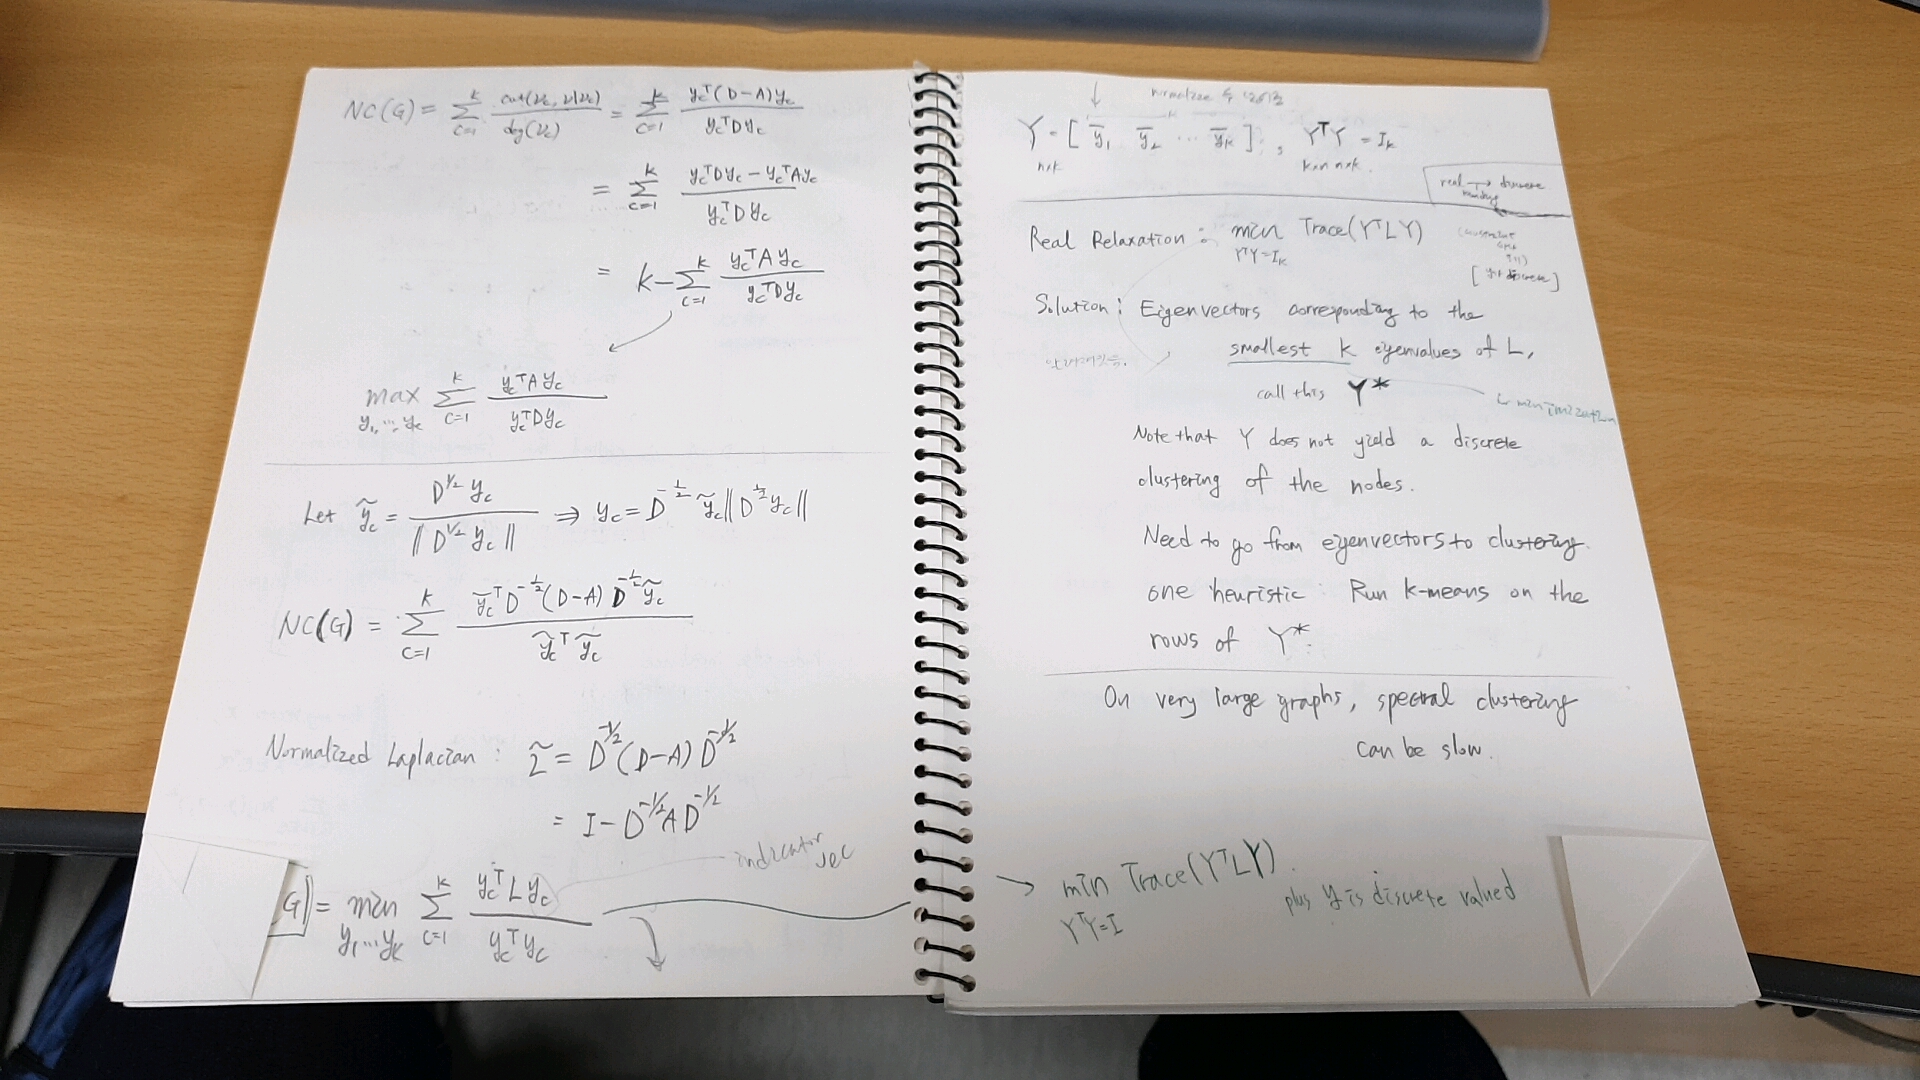 NC(G) = Σ_{c=1}^{k} cut(V_c, V\V_c) / deg(V_c) = Σ_{c=1}^{k} y_c^T(D-A)y_c / y_c^T D y_c
= Σ_{c=1}^{k} y_c^T D y_c - y_c^T A y_c / y_c^T D y_c
= k - Σ_{c=1}^{k} y_c^T A y_c / y_c^T D y_c
max_{y_1, ..., y_k} Σ_{c=1}^{k} y_c^T A y_c / y_c^T D y_c
Let ỹ_c = D^{1/2} y_c / ||D^{1/2} y_c|| ⇒ y_c = D^{-1/2} ỹ_c ||D^{1/2} y_c||
NC(G) = Σ_{c=1}^{k} ỹ_c^T D^{-1/2}(D-A) D^{-1/2} ỹ_c / ỹ_c^T ỹ_c
Normalized Laplacian : L̃ = D^{-1/2}(D-A) D^{-1/2}
= I - D^{-1/2} A D^{-1/2}
indicator vec
G) = min_{y_1...y_k} Σ_{c=1}^{k} y_c^T L y_c / y_c^T y_c
Y = [ ȳ_1 ȳ_2 ... ȳ_k ] , Y^T Y = I_k
n×k k×n n×k
real → discrete
Real Relaxation : min_{Y^T Y = I_k} Trace(Y^T L Y)
Solution : Eigenvectors corresponding to the
smallest k eigenvalues of L,
call this Y*
minimization
Note that Y does not yield a discrete
clustering of the nodes.
Need to go from eigenvectors to clustering.
one heuristic : Run k-means on the
rows of Y*.
On very large graphs, spectral clustering
can be slow.
→ min_{Y^T Y = I} Trace(Y^T L Y).
plus y is discrete valued